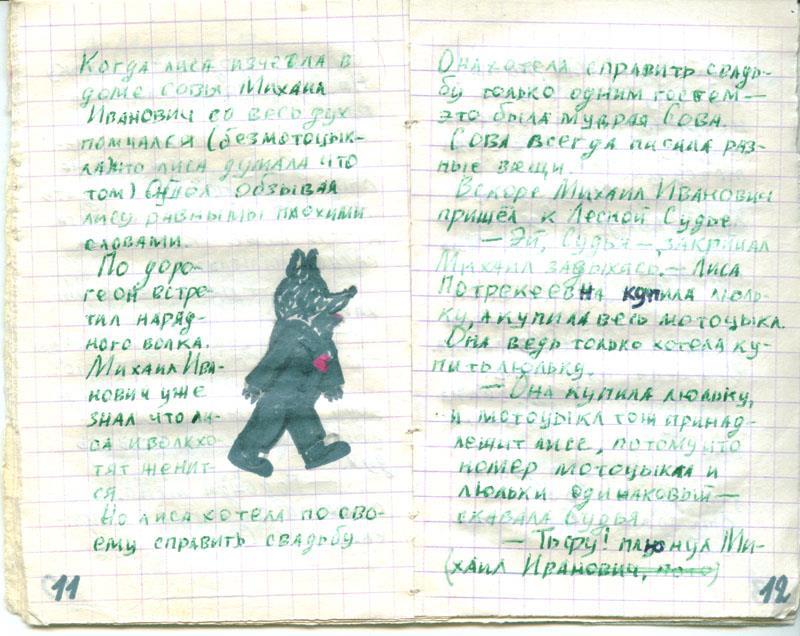 Когда лиса изчезла в
доме совы Михаил
Иванович со весь дух
помчался (безмотоцык-
ла) что лиса думала что
том) обзывая
лису разными плохими
словами.
По доро-
ге он встре-
тил наряд-
ного волка.
Михаил Ива-
нович уже
знал что ли-
са и волк хо-
тят женит-
ся
Но лиса хотела по сво-
ему справить свадьбу
11
Она хотела справить свадь-
бу только одним гостем—
это была мудрая Сова.
Сова всегда писала раз-
ные вещи.
Вскоре Михаил Иванович
пришёл к Лесной Судье
— Эй, Судья —, закричал
Михаил задыхась. — Лиса
Потрекеевна купила люль-
ку, а купила весь мотоцыкл.
Она ведь только хотела ку-
пить люльку.
— Она купила люльку,
и мотоцыкл тож принад-
лещит лисе, потому что
номер мотоцыкла и
люльки одинаковый—
сказала Судья.
— Тьфу! плюнул Ми-
(хаил Иванович, )
12